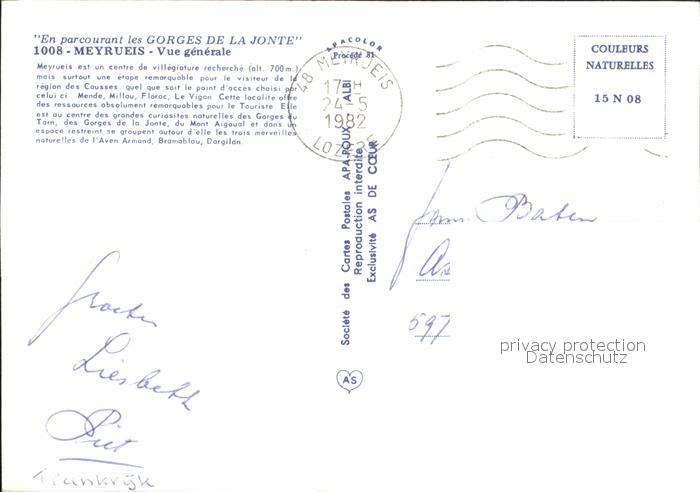 "En parcourant les GORGES DE LA JONTE"
1008 - MEYRUEIS - Vue générale
Meyrueis est un centre de villégiature recherché (alt. 700m.)
mais surtout une étape remarquable pour le visiteur de la
région des Causses quel que soit le point d'accès choisi par
celui ci Mende, Millau, Florac, Le Vigan Cette localité offre
des ressources absolument remarquables pour le Touriste Elle
est au centre des grandes curiosités naturelles des Gorges du
Tarn, des Gorges de la Jonte, du Mont Aigoual et dans un
espace restreint se groupent autour d'elle les trois merveilles
naturelles de l'Aven Armand, Bramabiau, Dargilan.
APACOLOR
Procédé 81
48 MEYRUEIS
17 H
24-5
1982
LOZERE
COULEURS
NATURELLES
15 N 08
Société des Cartes Postales APA-POUX ALBI
Reproduction interdite
Exclusivité AS DE CŒUR
AS
Baten
As
597
privacy protection
Datenschutz
Groeten
Liesbeth
Piet
Frankrijk